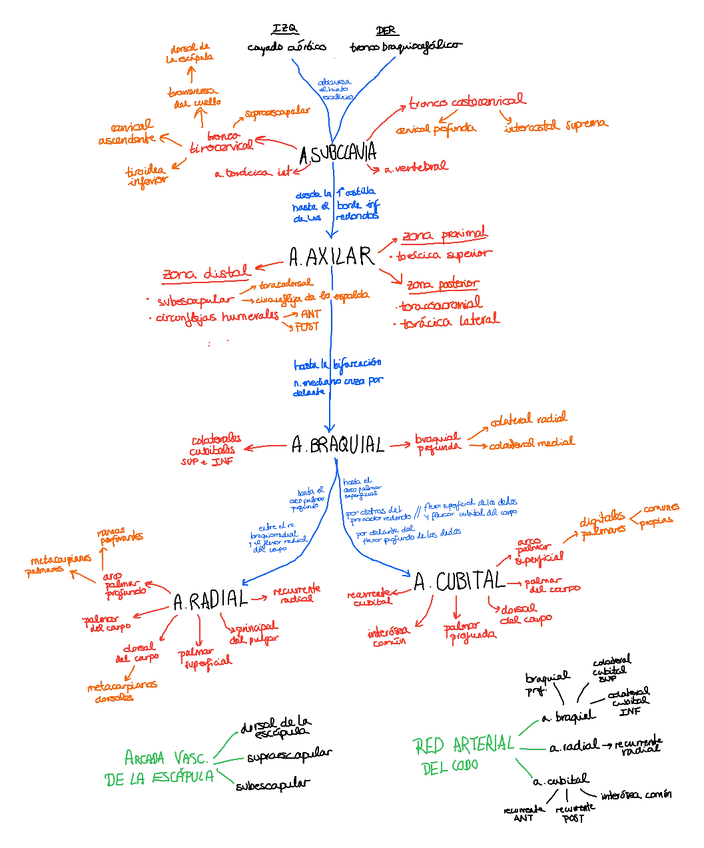 IZQ
cayado aórtico
DER
tronco braquiocefálico
atraviesa
el hiato
escalénico
dorsal de
la escápula
transversa
del cuello
supraescapular
cervical
ascendente
tronco
tirocervical
tiroidea
inferior
a. torácica int
A.SUBCLAVIA
tronco costocervical
cervical profunda
intercostal suprema
a. vertebral
desde la 1ª costilla
hasta el borde inf
de los redondos
A. AXILAR
zona proximal
· torácica superior
zona posterior
· toracoacromial
· torácica lateral
zona distal
· subescapular
toracodorsal
circunfleja de la espalda
· circunflejas humerales
ANT
POST
hasta la bifurcación
n. mediano cruza por
delante
A. BRAQUIAL
colaterales
cubitales
SUP e INF
braquial
profunda
colateral radial
colateral medial
hasta el
arco palmar
profundo
entre el m.
braquiorradial
y el flexor radial
del carpo
hasta el
arco palmar
superficial
por detras del
pronador redondo // flexor superficial de los dedos
y flexor cubital del carpo
por delante del
flexor profundo de los dedos
A. RADIAL
recurrente
radial
principal
del pulgar
palmar
superficial
dorsal
del carpo
metacarpianas
dorsales
palmar
del carpo
arco
palmar
profundo
ramas
perforantes
metacarpianas
palmares
A. CUBITAL
recurrente
cubital
interósea
común
palmar
profunda
dorsal
del carpo
palmar
del carpo
arco
palmar
superficial
digitales
palmares
comunes
propias
ARCADA VASC.
DE LA ESCÁPULA
dorsal de la
escápula
supraescapular
subescapular
RED ARTERIAL
DEL CODO
a. braquial
braquial
prof.
colateral
cubital
SUP
colateral
cubital
INF
a. radial → recurrente
radial
a. cubital
recurrente
ANT
recurrente
POST
interósea común